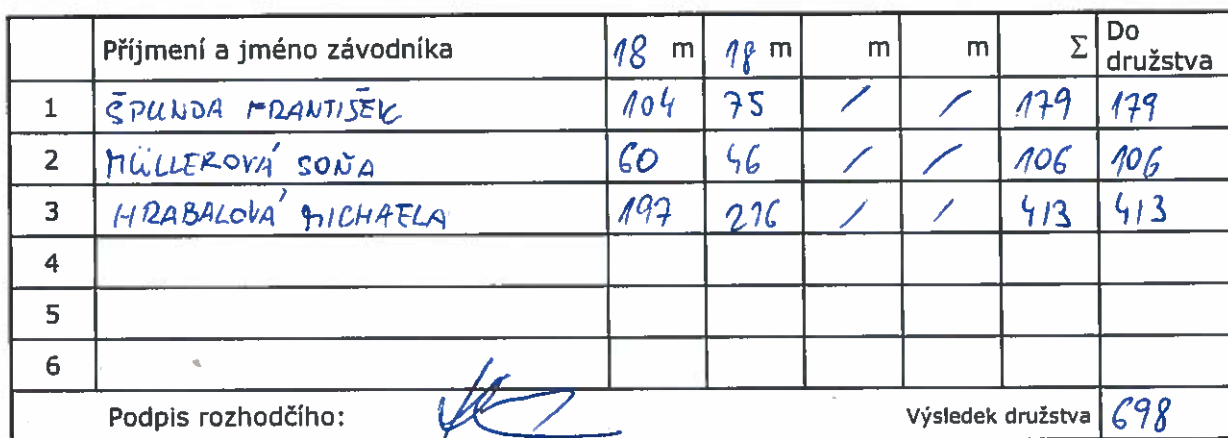 Příjmení a jméno závodníka 18 m 18 m m m Σ Do družstva
1 ŠPUNDA FRANTIŠEK 104 75 / / 179 179
2 MÜLLEROVÁ SOŇA 60 46 / / 106 106
3 HRABALOVÁ MICHAELA 197 216 / / 413 413
4
5
6
Podpis rozhodčího: Výsledek družstva 698